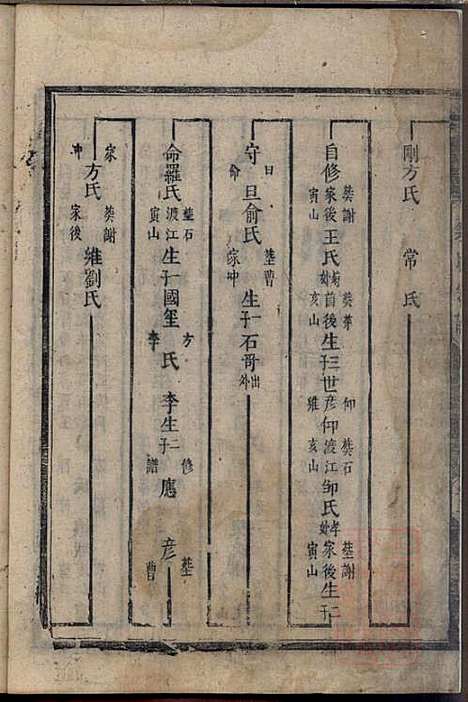 剛方氏 常氏
自修 葬謝家後寅山 王氏 葬茅前後亥山 生子三 世彥仰 仰雍 葬石渡江亥山 鄒氏 葬謝家後寅山 生子二
守旦 曰命 俞氏 葬曹家冲 生子一 石哥 出外
命羅氏 葬石渡江寅山 生子一 國璽 方李氏 李生子二 修譜 應彥 葬曹
家冲 方氏 葬謝家後 維劉氏